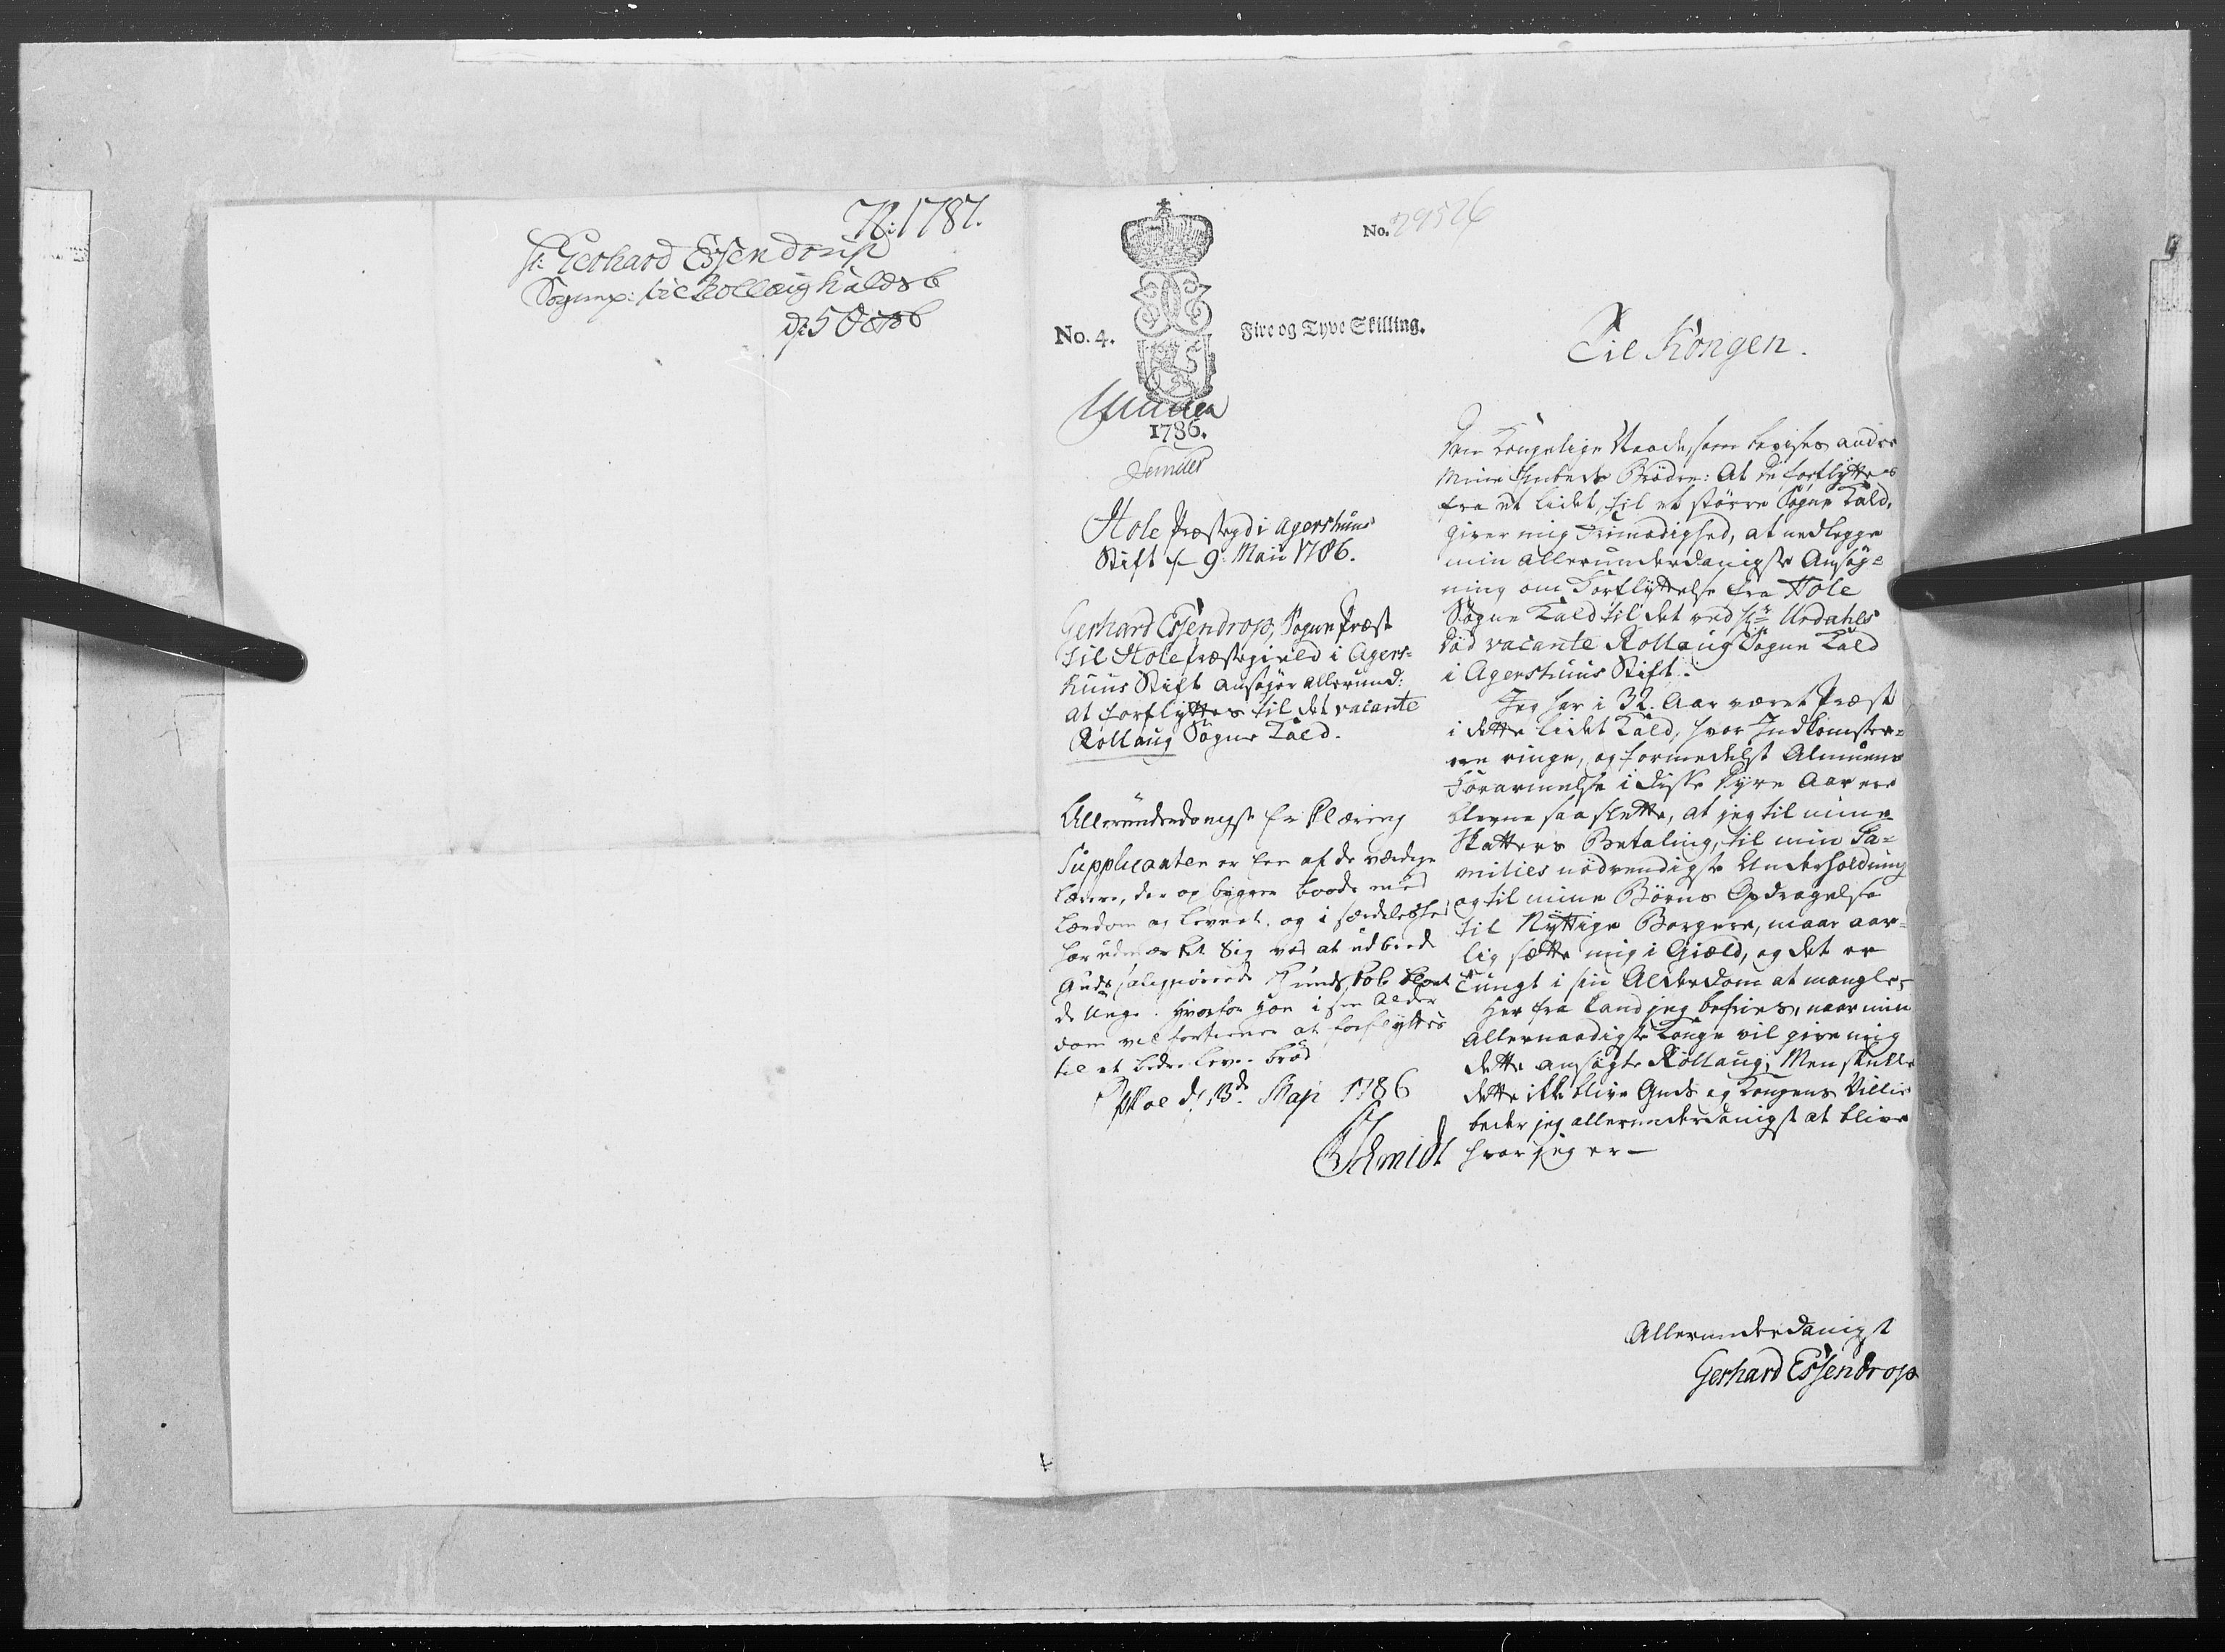 N: 1787.
Hr: Gerhard Essendrop
Sognepr: til Rollaug Kald 86
D: 5 Octb
No. 29526
No. 4.
Fire og Tyve Skilling.
1786.
Hole Præstegd i Agershuus
Stift d 9. Maii 1786.
Gerhard Essendrop, Sogne Præst
til Hole Præstegield i Agers-
huus Stift ansøger allerund:
at forflyttes til det vacante
Rollaug Sogne Kald.
Allerunderdanigst Erklæring
Supplicanten er Een af de værdige
Lærere, der opbygger baade med
Lærdom og Levnet, og i særdeleshed
har udmærket Sig ved at udbrede
Guds saliggiørende Kundskab blant
de Unge. Hvorfor Han i sin Alder
dom vel fortiener at forflyttes
til et bedre Leve-brød
d. 13de Maji 1786
Schmidt
Til Kongen.
Den Kongelige Naade, som bevises andre
mine Embeds Brødre: At de forflyttes
fra et lidet, til et større Sogne Kald,
giver mig Frimodighed, at nedlegge
min allerunderdanigste Ansøg-
ning om Forflyttelse fra Hole
Sogne Kald til det ved Hr Urdahls
Død vacante Rollaug Sogne Kald
i Agershuus Stift.
Jeg har i 32. Aar været Præst
i dette lidet Kald, hvor Indkomster-
ne ringe, og formedelst Almuens
Forarmelse i disse dyre Aar ere
blevne saa slette, at jeg til mine
Skatters Betaling, til min Fa-
milies nødvendigste Underholdning
og til mine Børns Opdragelse
til Nyttige Borgere, maae aar-
lig sætte mig i Giæld, og det er
tungt i sin Alderdom at mangle,
Her fra kand jeg befries, naar min
Allernaadigste Konge vil give mig
dette ansøgte Rollaug; Men skulle
dette ikke blive Guds og Kongens Villie
beder jeg allerunderdanigst at blive
hvor jeg er —
Allerunderdanigst
Gerhard Essendrop